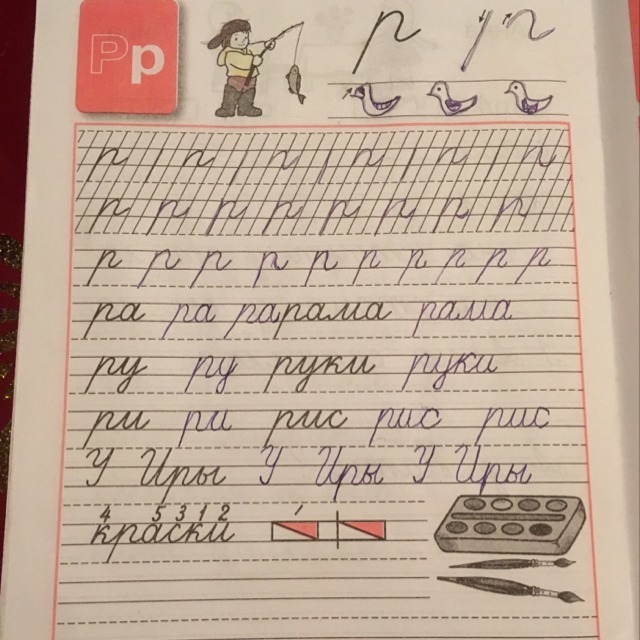 Рр р р
р р р р р р
р р р р р р р р
р р р р р р р р р р
ра ра ра рама рама
ру ру руки руки
ри ри рис рис рис
У Иры У Иры У Иры
4 5 3 1 2
краски